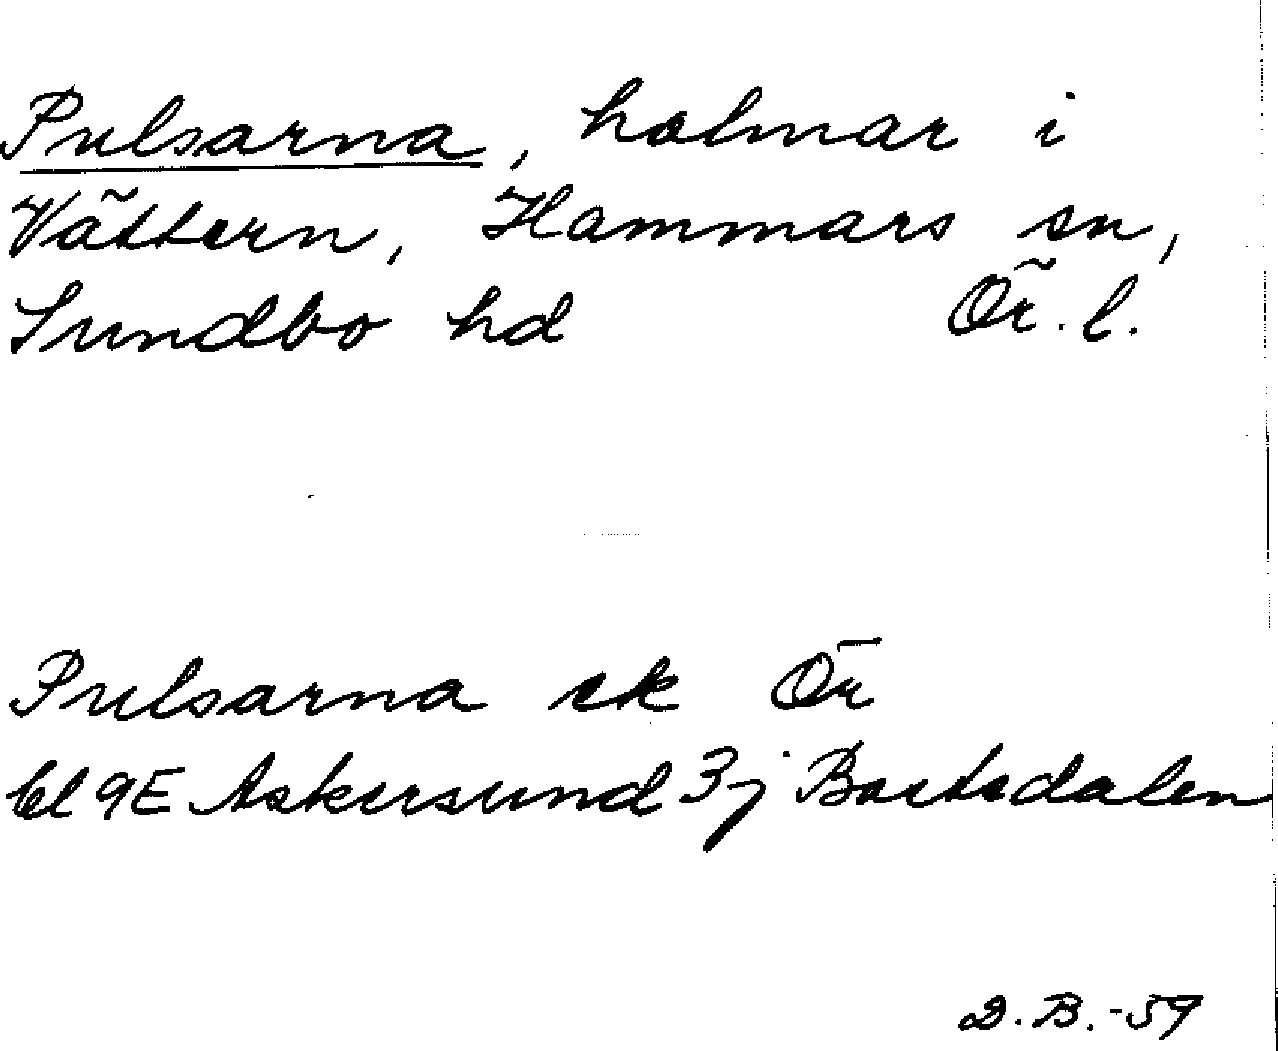 Pulsarna, holmar i
Vättern, Hammars sn,
Sundbo hd Ör. l.
Pulsarna ek Ör
bl 9E Askersund 3j Bastedalen
D. B. -59